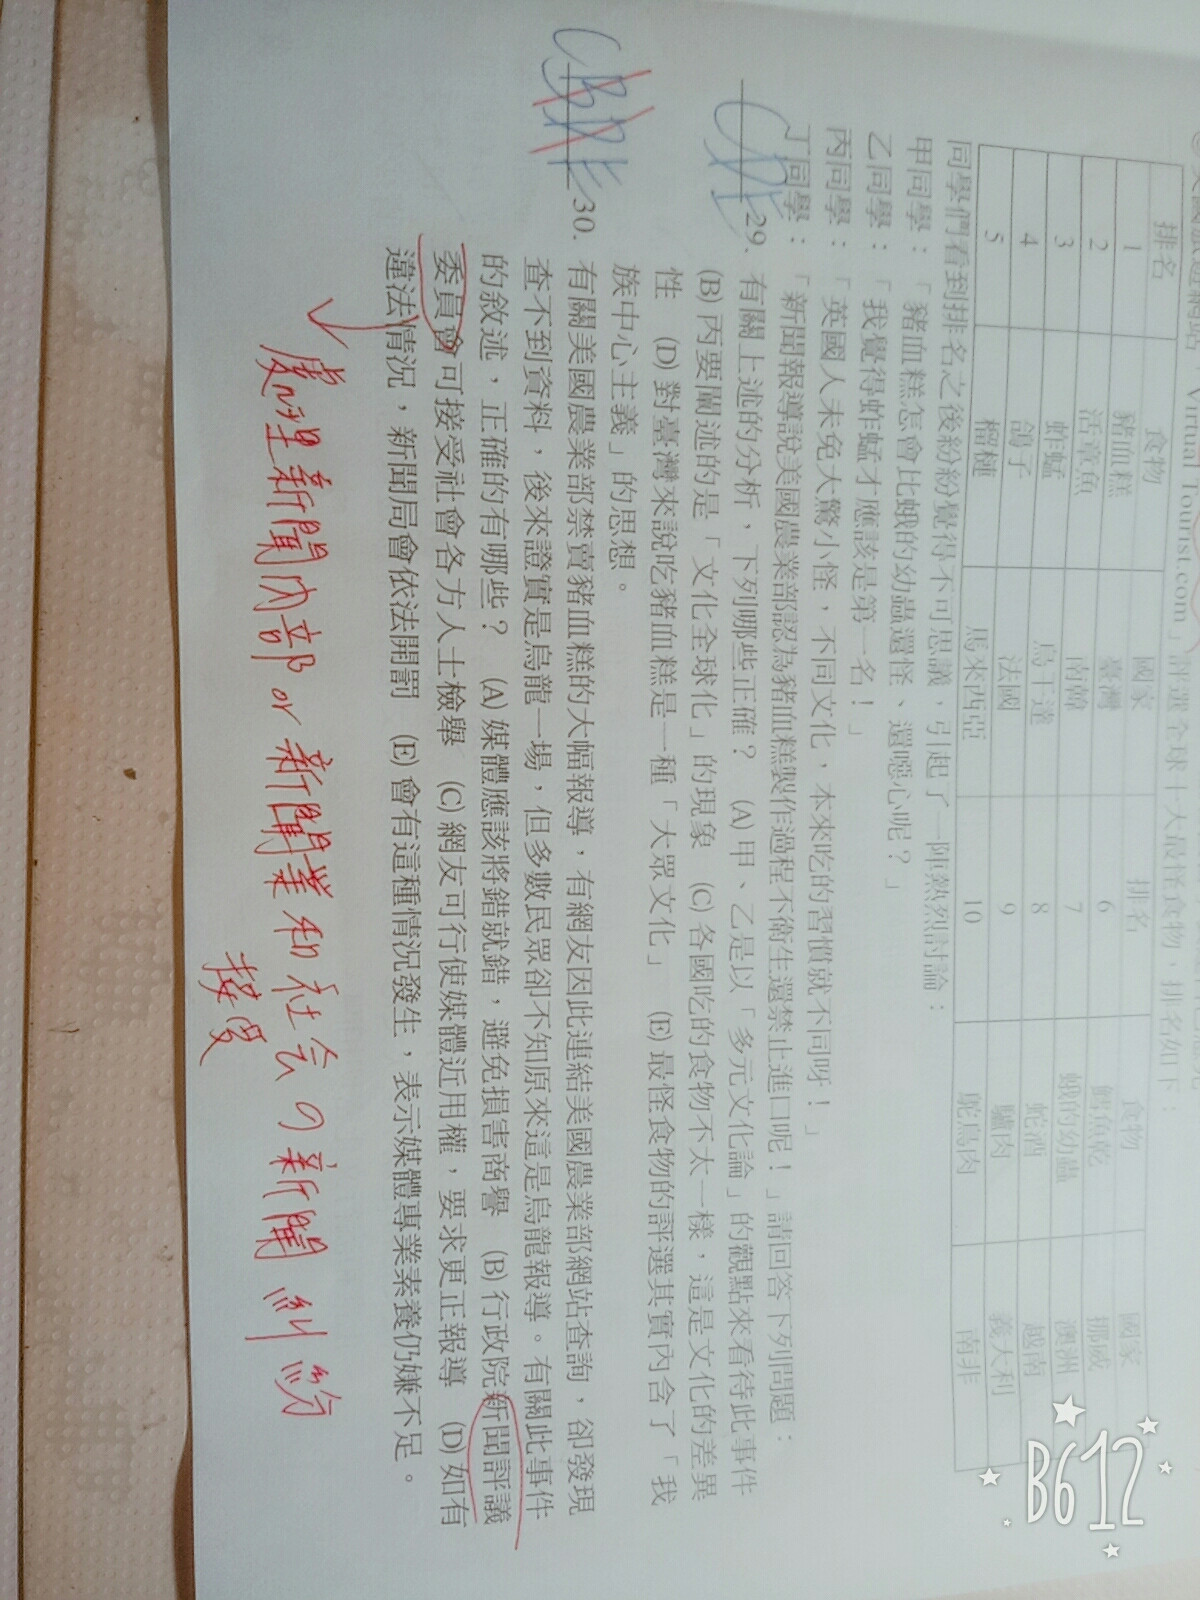 Virtual Tourist.com」評選全球十大最怪食物，排名如下：
排名 食物 國家 排名 食物 國家
1 豬血糕 臺灣 6 鱈魚乾 挪威
2 活章魚 南韓 7 蛾的幼蟲 澳洲
3 蚱蜢 烏干達 8 蛇酒 越南
4 鴿子 法國 9 驢肉 義大利
5 榴槤 馬來西亞 10 鴕鳥肉 南非
同學們看到排名之後紛紛覺得不可思議，引起了一陣熱烈討論：
甲同學：「豬血糕怎會比蛾的幼蟲還怪、還噁心呢？」
乙同學：「我覺得蚱蜢才應該是第一名！」
丙同學：「英國人未免大驚小怪，不同文化，本來吃的習慣就不同呀！」
丁同學：「新聞報導說美國農業部認為豬血糕製作過程不衛生還禁止進口呢！」請回答下列問題：
CDE 29. 有關上述的分析，下列哪些正確？ (A)甲、乙是以「多元文化論」的觀點來看待此事件
(B)丙要闡述的是「文化全球化」的現象 (C)各國吃的食物不太一樣，這是文化的差異
性 (D)對臺灣來說吃豬血糕是一種「大眾文化」 (E)最怪食物的評選其實內含了「我
族中心主義」的思想。
30. 有關美國農業部禁賣豬血糕的大幅報導，有網友因此連結美國農業部網站查詢，卻發現
查不到資料，後來證實是烏龍一場，但多數民眾卻不知原來這是烏龍報導。有關此事件
的敘述，正確的有哪些？ (A)媒體應該將錯就錯，避免損害商譽 (B)行政院新聞評議
委員會可接受社會各方人士檢舉 (C)網友可行使媒體近用權，要求更正報導 (D)如有
違法情況，新聞局會依法開罰 (E)會有這種情況發生，表示媒體專業素養仍嫌不足。
處理新聞內部or新聞業和社会の新聞糾紛
接受